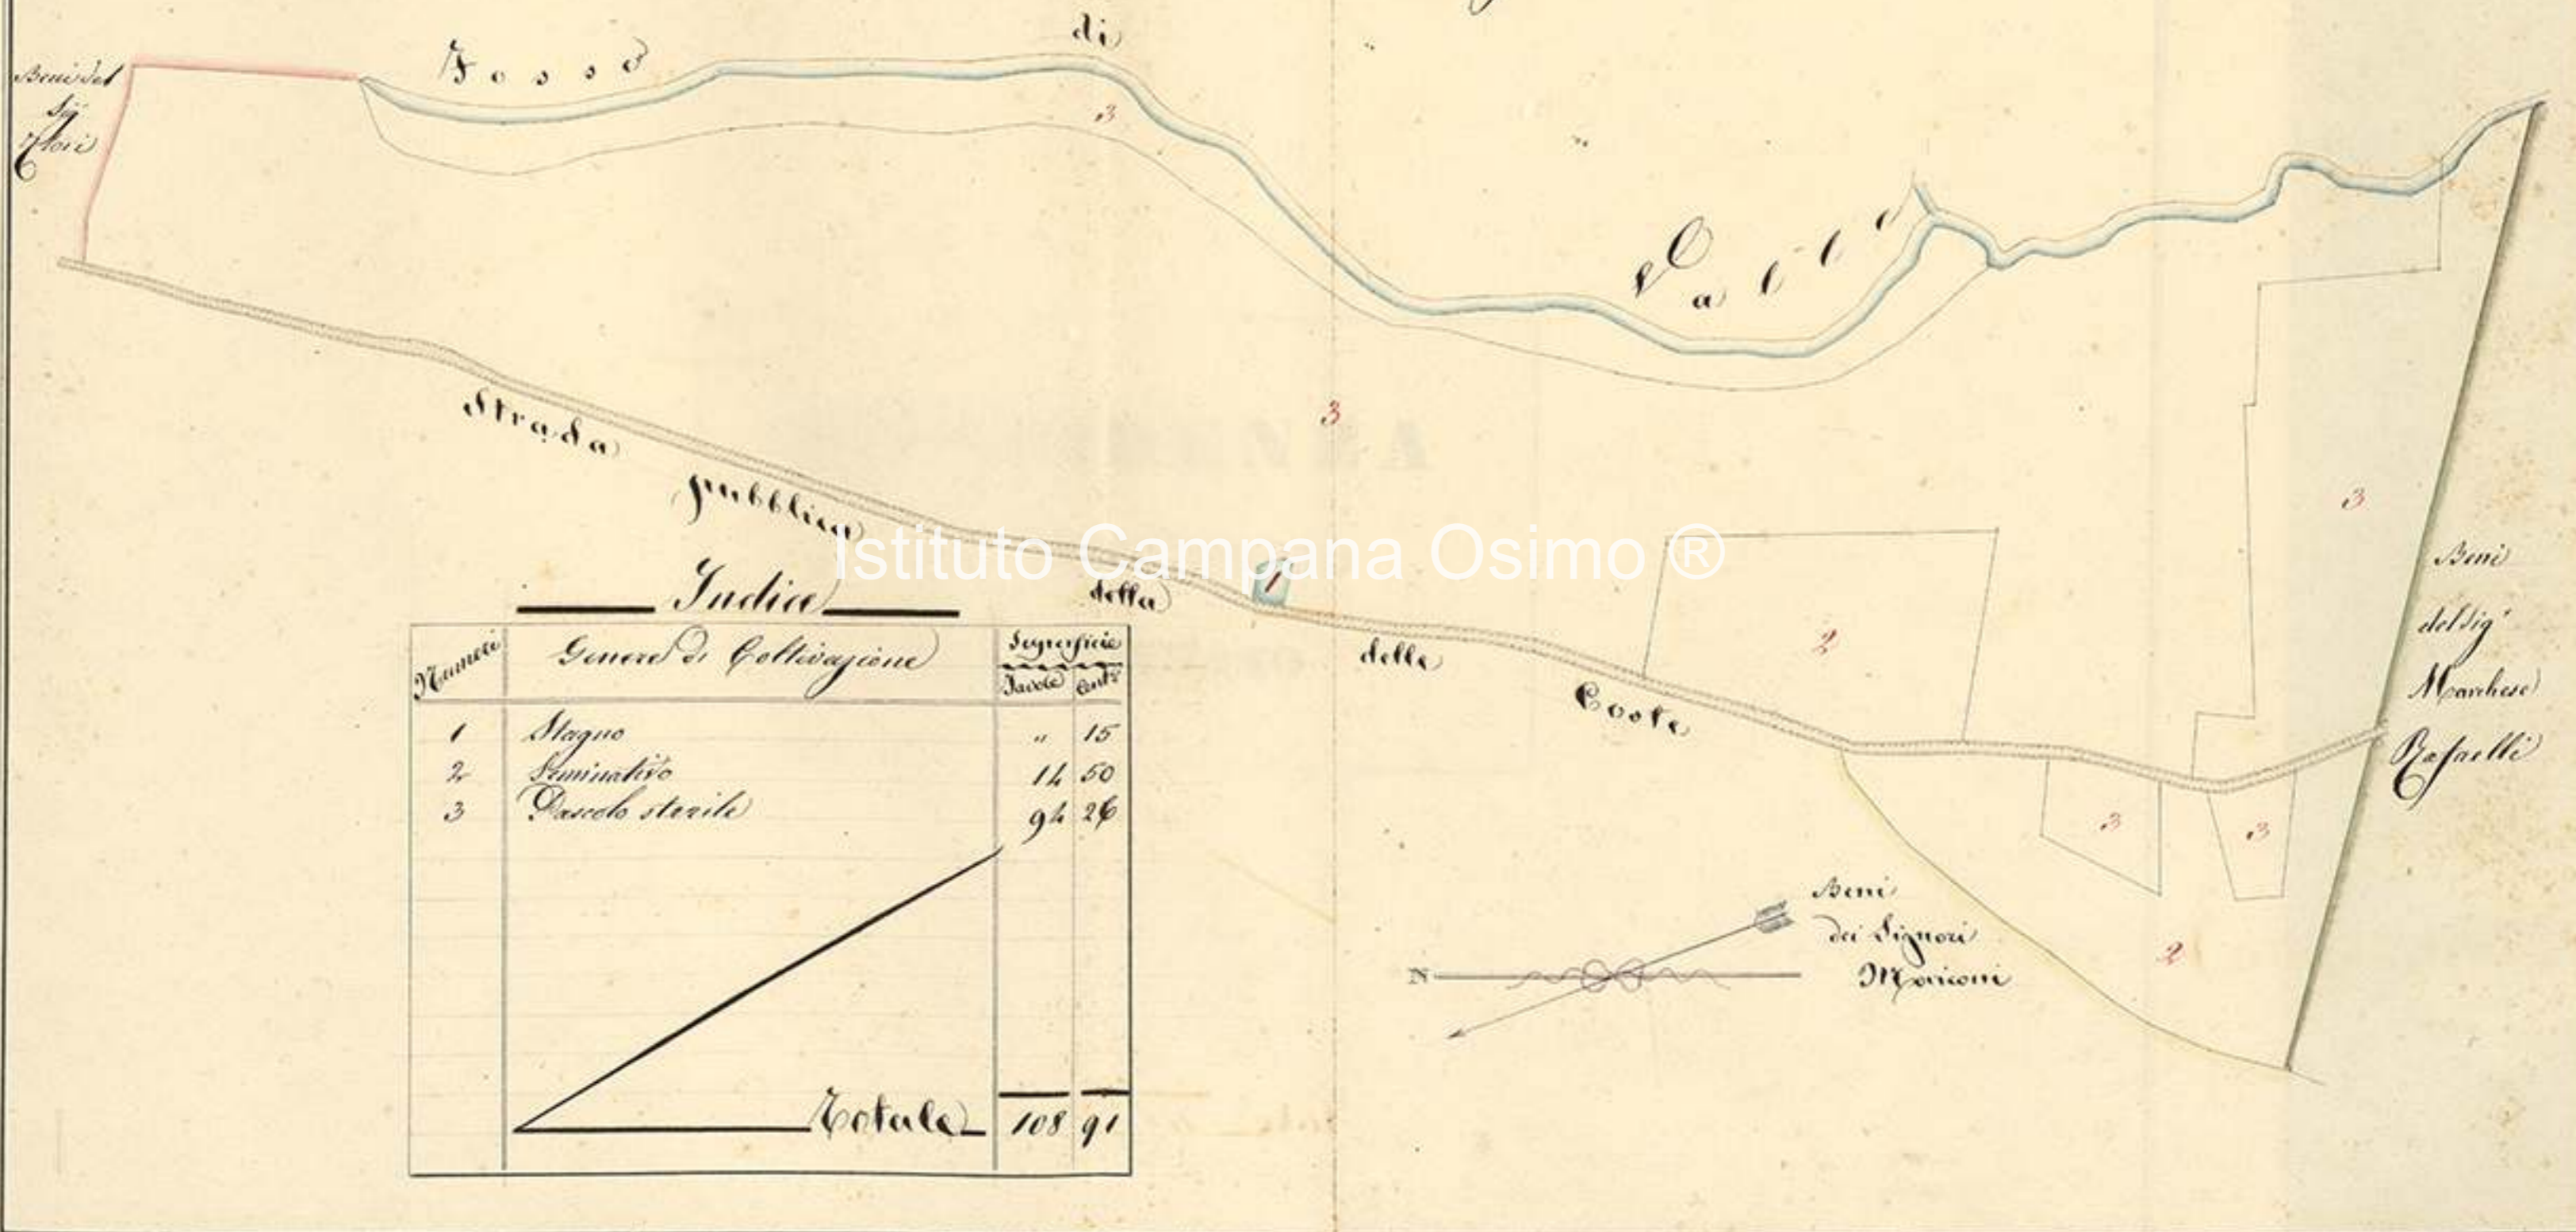 Fosso di Valle
Beni del
Sig.r
Flori
3
3
3
Strada pubblica della
delle Coste
Istituto Campana Osimo ®
1
2
Beni
del Sig.r
Marchese
Rafaelli
3
3
2
Beni
dei Signori
Marconi
N
Indice
Numeri Genere di Coltivazione Superficie
Tavole Cent.i
1 Stagno " 15
2 Seminativo 14 50
3 Pascolo sterile 94 26
Totale 108 91